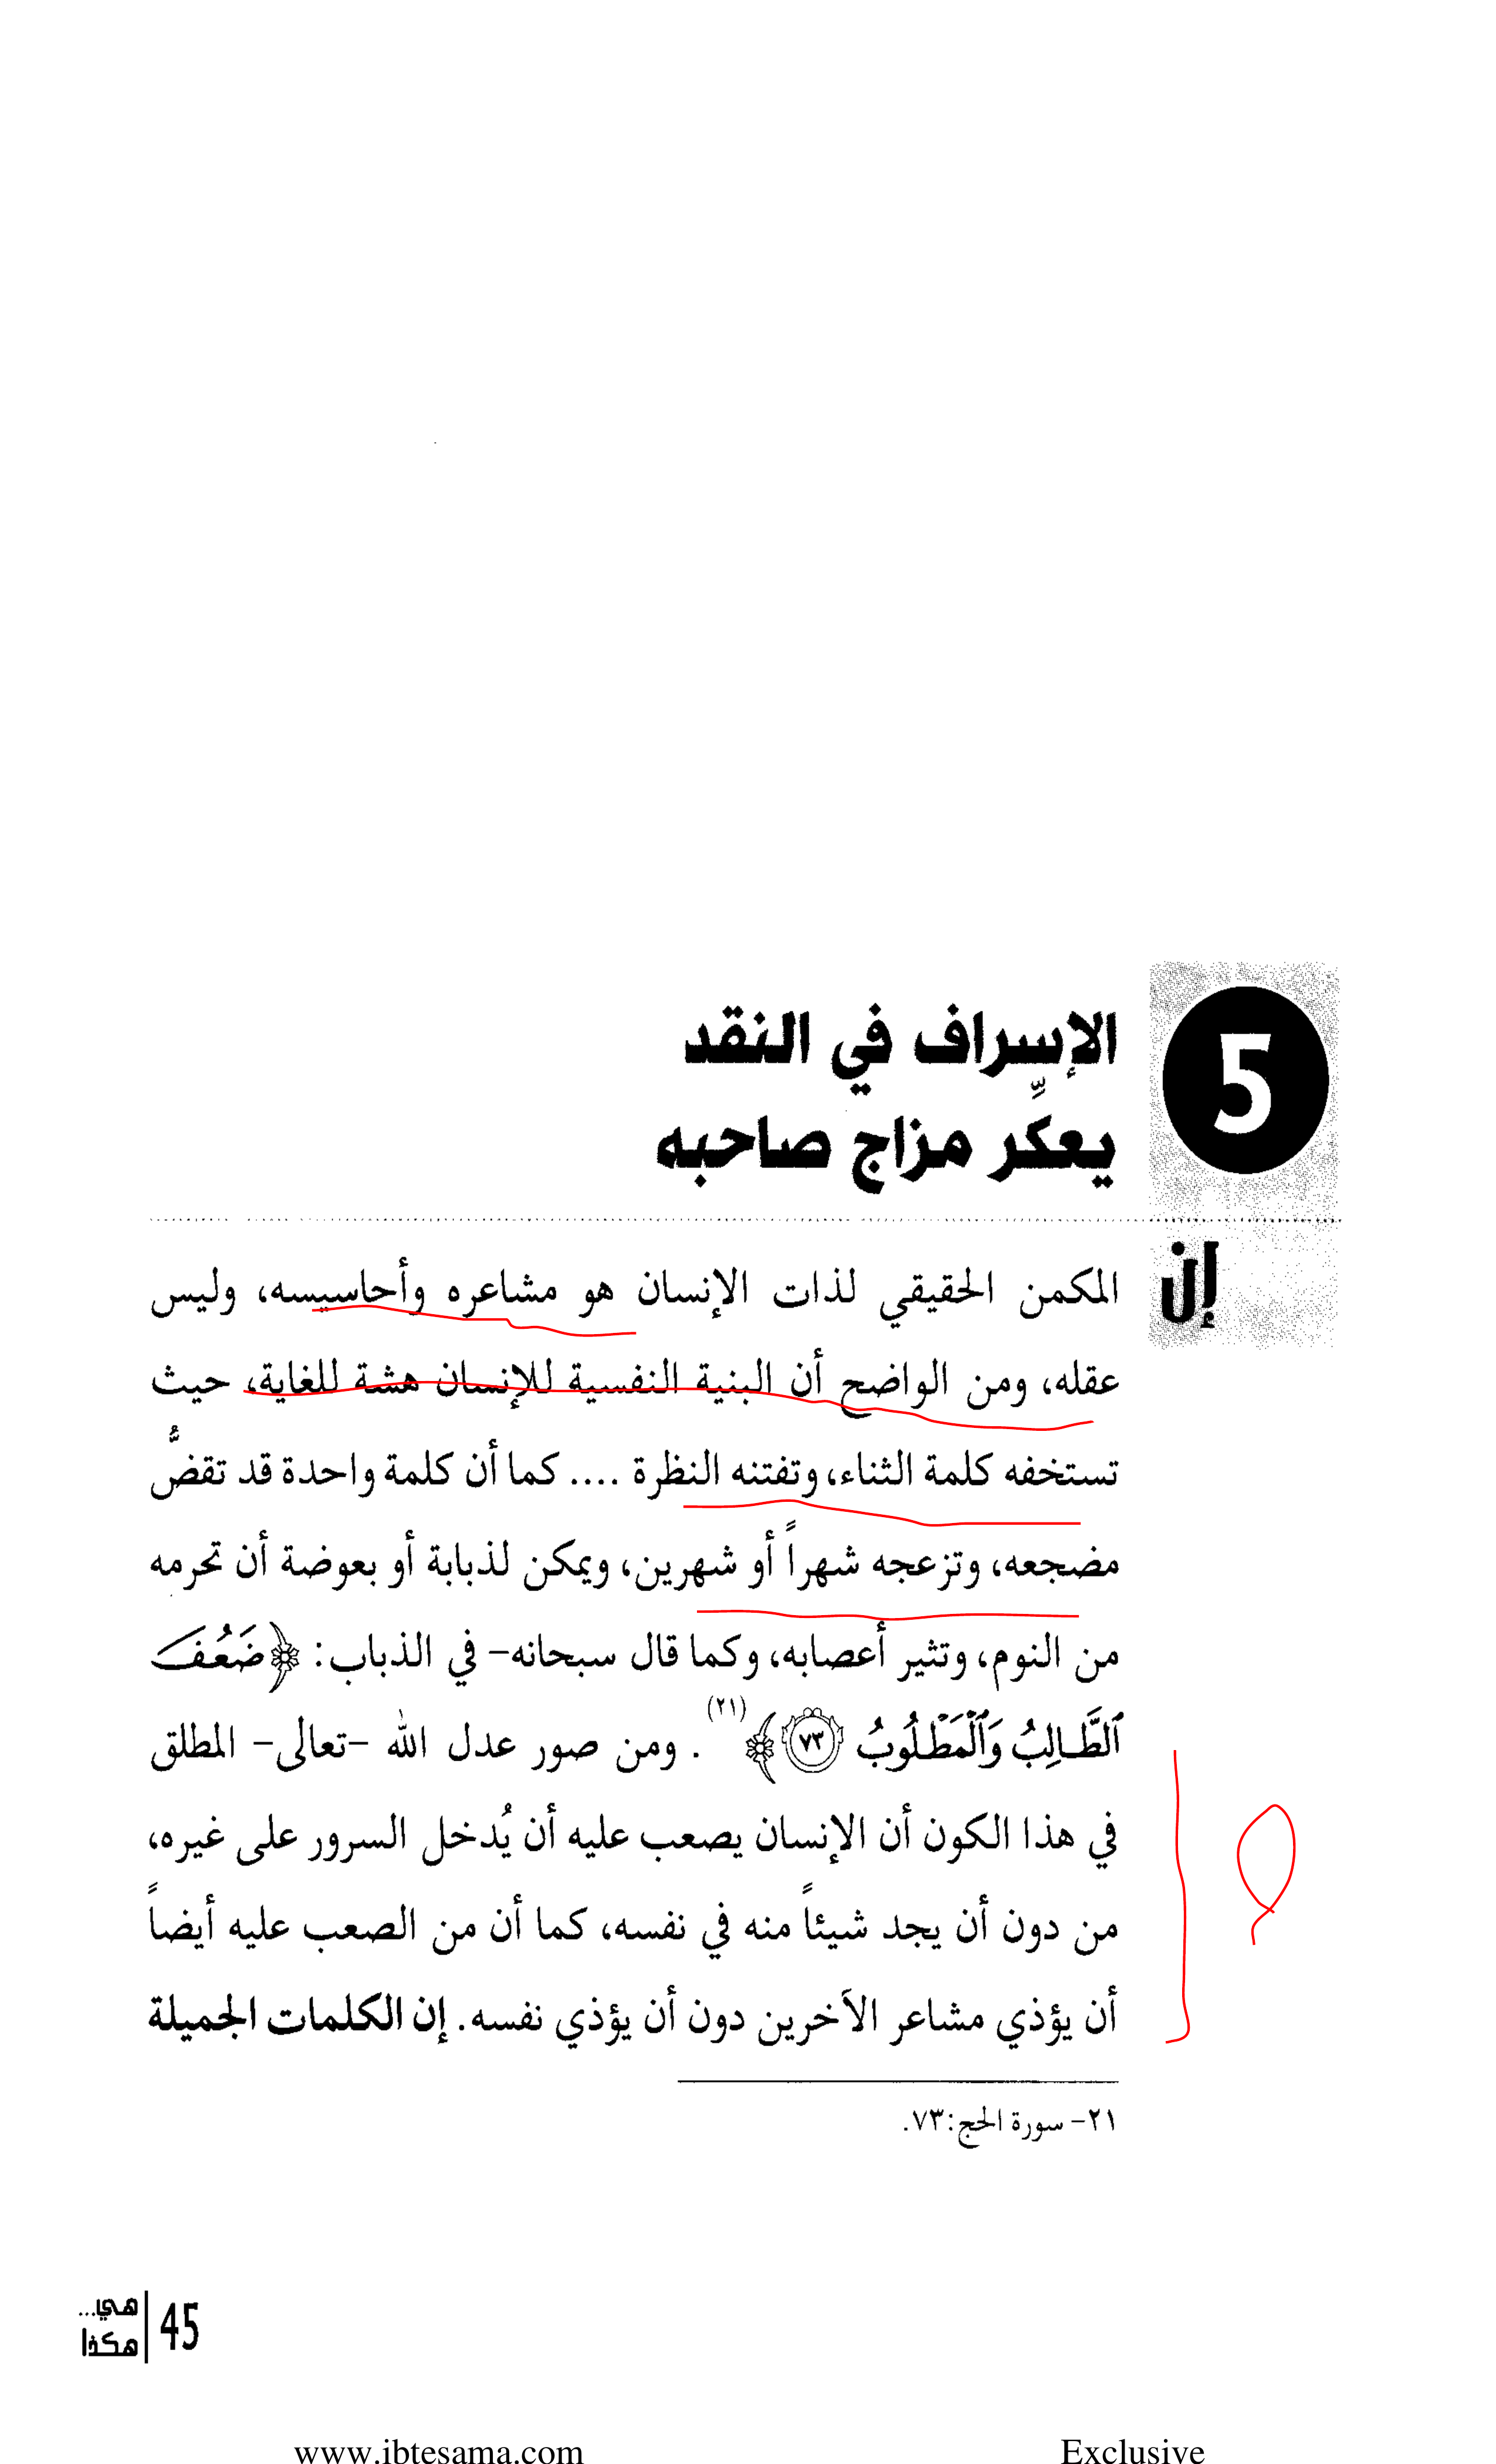 5
الإسراف في النقد
يعكِّر مزاج صاحبه
إن المكمن الحقيقي لذات الإنسان هو مشاعره وأحاسيسه، وليس
عقله، ومن الواضح أن البنية النفسية للإنسان هشة للغاية، حيث
تستخفه كلمة الثناء، وتفتنه النظرة .... كما أن كلمة واحدة قد تقضُّ
مضجعه، وتزعجه شهراً أو شهرين، ويمكن لذبابة أو بعوضة أن تحرمه
من النوم، وتثير أعصابه، وكما قال سبحانه- في الذباب: ﴿ضَعُفَ
ٱلطَّالِبُ وَٱلْمَطْلُوبُ ٧٣﴾(٢١). ومن صور عدل الله -تعالى- المطلق
في هذا الكون أن الإنسان يصعب عليه أن يُدخل السرور على غيره،
من دون أن يجد شيئاً منه في نفسه، كما أن من الصعب عليه أيضاً
أن يؤذي مشاعر الآخرين دون أن يؤذي نفسه. إن الكلمات الجميلة
٢١- سورة الحج:٧٣.
45
هي...
هكذا
www.ibtesama.com
Exclusive